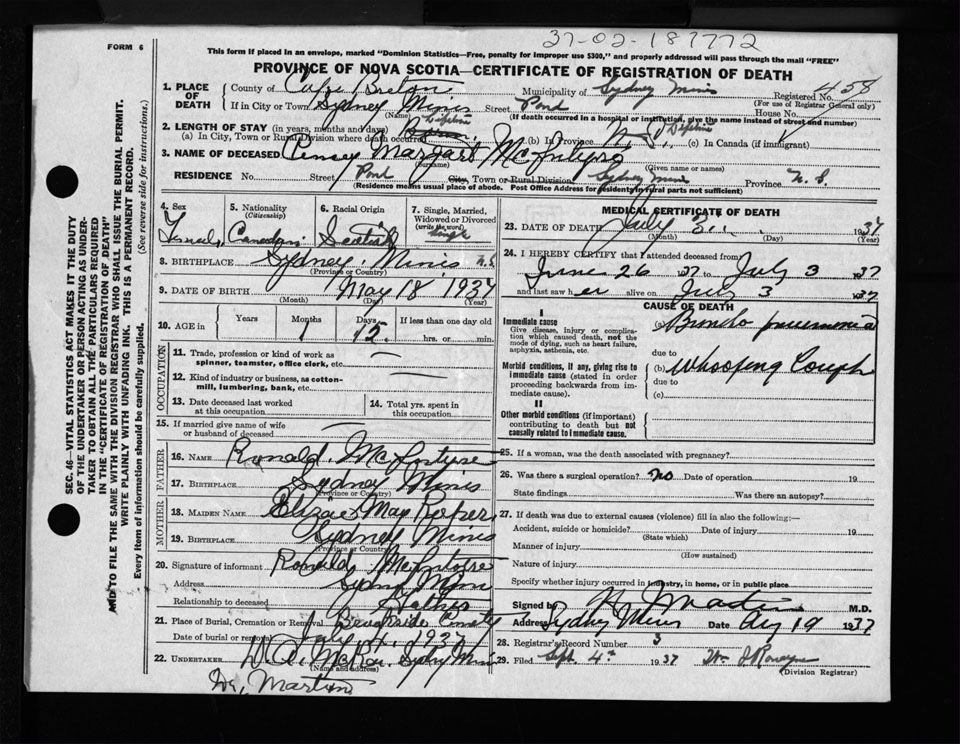 37-02-187772
FORM 6
This form if placed in an envelope, marked "Dominion Statistics—Free, penalty for improper use $300," and properly addressed will pass through the mail "FREE"
PROVINCE OF NOVA SCOTIA—CERTIFICATE OF REGISTRATION OF DEATH
1. PLACE OF DEATH
County of Cape Breton Municipality of Sydney Mines Registered No. 458
(For use of Registrar General only)
If in City or Town Sydney Mines Street Pond House No.
(Name) (If death occurred in a hospital or institution, give the name instead of street and number)
2. LENGTH OF STAY (in years, months and days)
(a) In City, Town or Rural Division where death occurred Lifetime (b) In Province Lifetime (c) In Canada (if immigrant)
3. NAME OF DECEASED Margart McIntyre
(Surname) (Given name or names)
RESIDENCE No. Street Pond City, Town or Rural Division Sydney Mines Province N. S.
(Residence means usual place of abode. Post Office Address for residents in rural parts not sufficient)
4. Sex 5. Nationality (Citizenship) 6. Racial Origin 7. Single, Married, Widowed or Divorced (write the word)
Female Canadian Scotish Single
8. BIRTHPLACE Sydney Mines N.S.
(Province or Country)
9. DATE OF BIRTH May 18 1937
(Month) (Day) (Year)
10. AGE in Years Months Days If less than one day old
1 15 hrs. or min.
OCCUPATION
11. Trade, profession or kind of work as spinner, teamster, office clerk, etc.
12. Kind of industry or business, as cotton-mill, lumbering, bank, etc.
13. Date deceased last worked at this occupation
14. Total yrs. spent in this occupation
15. If married give name of wife or husband of deceased
FATHER
16. NAME Ronald McIntyre
17. BIRTHPLACE Sydney Mines
(Province or Country)
MOTHER
18. MAIDEN NAME May
19. BIRTHPLACE Sydney Mines
(Province or Country)
20. Signature of informant Ronald McIntyre
Address Sydney Mines
Relationship to deceased Father
21. Place of Burial, Cremation or Removal Brookside
Date of burial or removal July 1937
22. UNDERTAKER McRae Sydney Mines
(Name and Address)
Dr. Martin
MEDICAL CERTIFICATE OF DEATH
23. DATE OF DEATH July 3 1937
(Month) (Day) (Year)
24. I HEREBY CERTIFY that I attended deceased from
June 26 1937 to July 3 1937
and last saw her alive on July 3 1937
CAUSE OF DEATH
I
Immediate cause
Give disease, injury or complication which caused death, not the mode of dying, such as heart failure, asphyxia, asthenia, etc.
(a) Broncho pneumonia
due to
Morbid conditions, if any, giving rise to immediate cause (stated in order proceeding backwards from immediate cause).
(b) Whooping Cough
due to
(c)
II
Other morbid conditions (if important) contributing to death but not causally related to immediate cause.
25. If a woman, was the death associated with pregnancy?
26. Was there a surgical operation? No Date of operation 19
State findings Was there an autopsy?
27. If death was due to external causes (violence) fill in also the following:—
Accident, suicide or homicide? Date of injury 19
(State which)
Manner of injury
(How sustained)
Nature of injury
Specify whether injury occurred in industry, in home, or in public place
Signed by Martin M.D.
Address Sydney Mines Date Aug 19 1937
28. Registrar's Record Number 3
29. Filed Sept. 4th 1937 Wm
(Division Registrar)
SEC. 46—VITAL STATISTICS ACT MAKES IT THE DUTY OF THE UNDERTAKER OR PERSON ACTING AS UNDERTAKER TO OBTAIN ALL THE PARTICULARS REQUIRED IN THE "CERTIFICATE OF REGISTRATION OF DEATH" AND TO FILE THE SAME WITH THE DIVISION REGISTRAR WHO SHALL ISSUE THE BURIAL PERMIT.
WRITE PLAINLY WITH UNFADING INK. THIS IS A PERMANENT RECORD.
Every item of information should be carefully supplied. (See reverse side for instructions.)